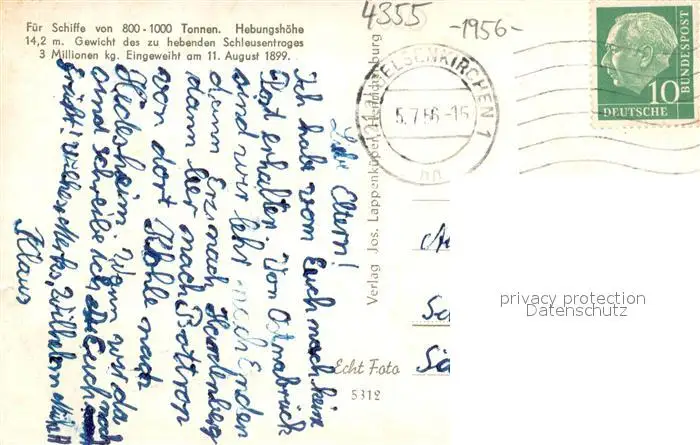 Für Schiffe von 800-1000 Tonnen. Hebungshöhe
14,2 m. Gewicht des zu hebenden Schleusentroges
3 Millionen kg. Eingeweiht am 11. August 1899.
4355
-1956-
GELSENKIRCHEN 1
5.7.56-15
DEUTSCHE
BUNDESPOST
10
Liebe Eltern!
Ich habe vom Euch noch keine
Post erhalten. Von Osnabrück
sind wir lehr nach Enden
dann Erz nach Hardenberg
dann leer nach Bottrop
von dort Kohle nach
Hildesheim. Wenn wir da
sind schreibe ich Euch noch
grüßt! Wilhelm
Klaus
Verlag Jos. Lappenküper, Henrichenburg
Echt Foto
5312
privacy protection
Datenschutz